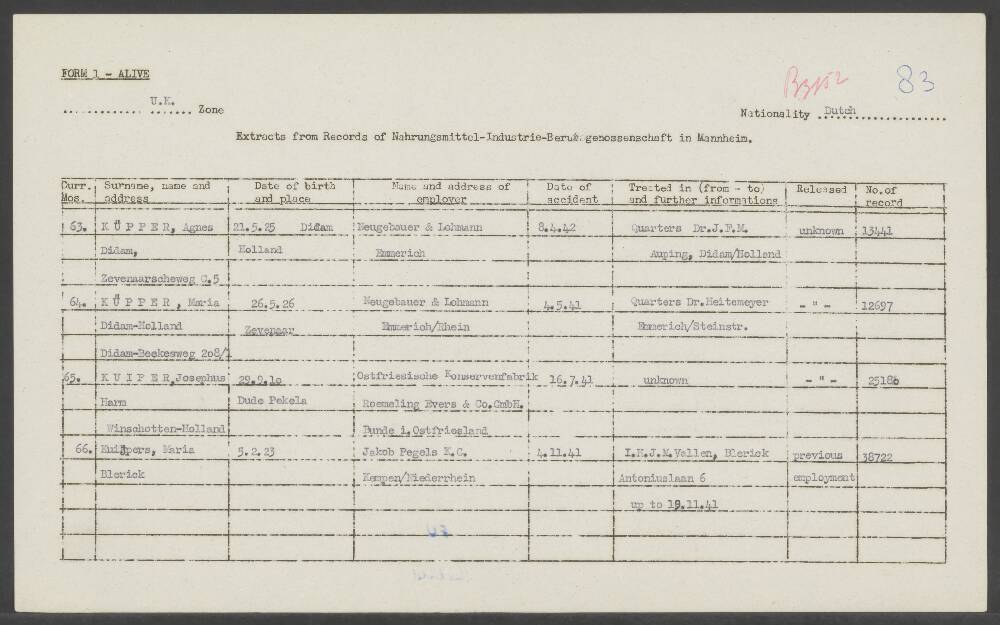 FORM 1 - ALIVE
B3152 83
U.K.
Zone
Nationality Dutch
Extracts from Records of Nahrungsmittel-Industrie-Berufsgenossenschaft in Mannheim.
Curr. Surname, name and Date of birth Name and address of Date of Treated in (from - to) Released No.of
Nos. address and place employer accident and further informations record
63. KÜPPER, Agnes 21.5.25 Didam Neugebauer & Lohmann 8.4.42 Quarters Dr.J.F.M. unknown 13441
Didam, Holland Emmerich Auping, Didam/Holland
Zevenaarscheweg C.5
64. KÜPPER, Maria 26.5.26 Neugebauer & Lohmann 4.5.41 Quarters Dr.Heitemeyer - " - 12697
Didam-Holland Zevenaar Emmerich/Rhein Emmerich/Steinstr.
Didam-Beekesweg 208/1
65. KUIPER, Josephus 29.9.10 Ostfriesische Konservenfabrik 16.7.41 unknown - " - 25186
Harm Dude Pekela Roemeling Evers & Co.GmbH.
Winschotten-Holland Bunde i.Ostfriesland
66. Kuijpers, Maria 3.2.23 Jakob Pegels K.C. 4.11.41 I.H.J.M.Vallen, Blerick previous 38722
Blerick Kempen/Niederrhein Antoniuslaan 6 employment
up to 19.11.41